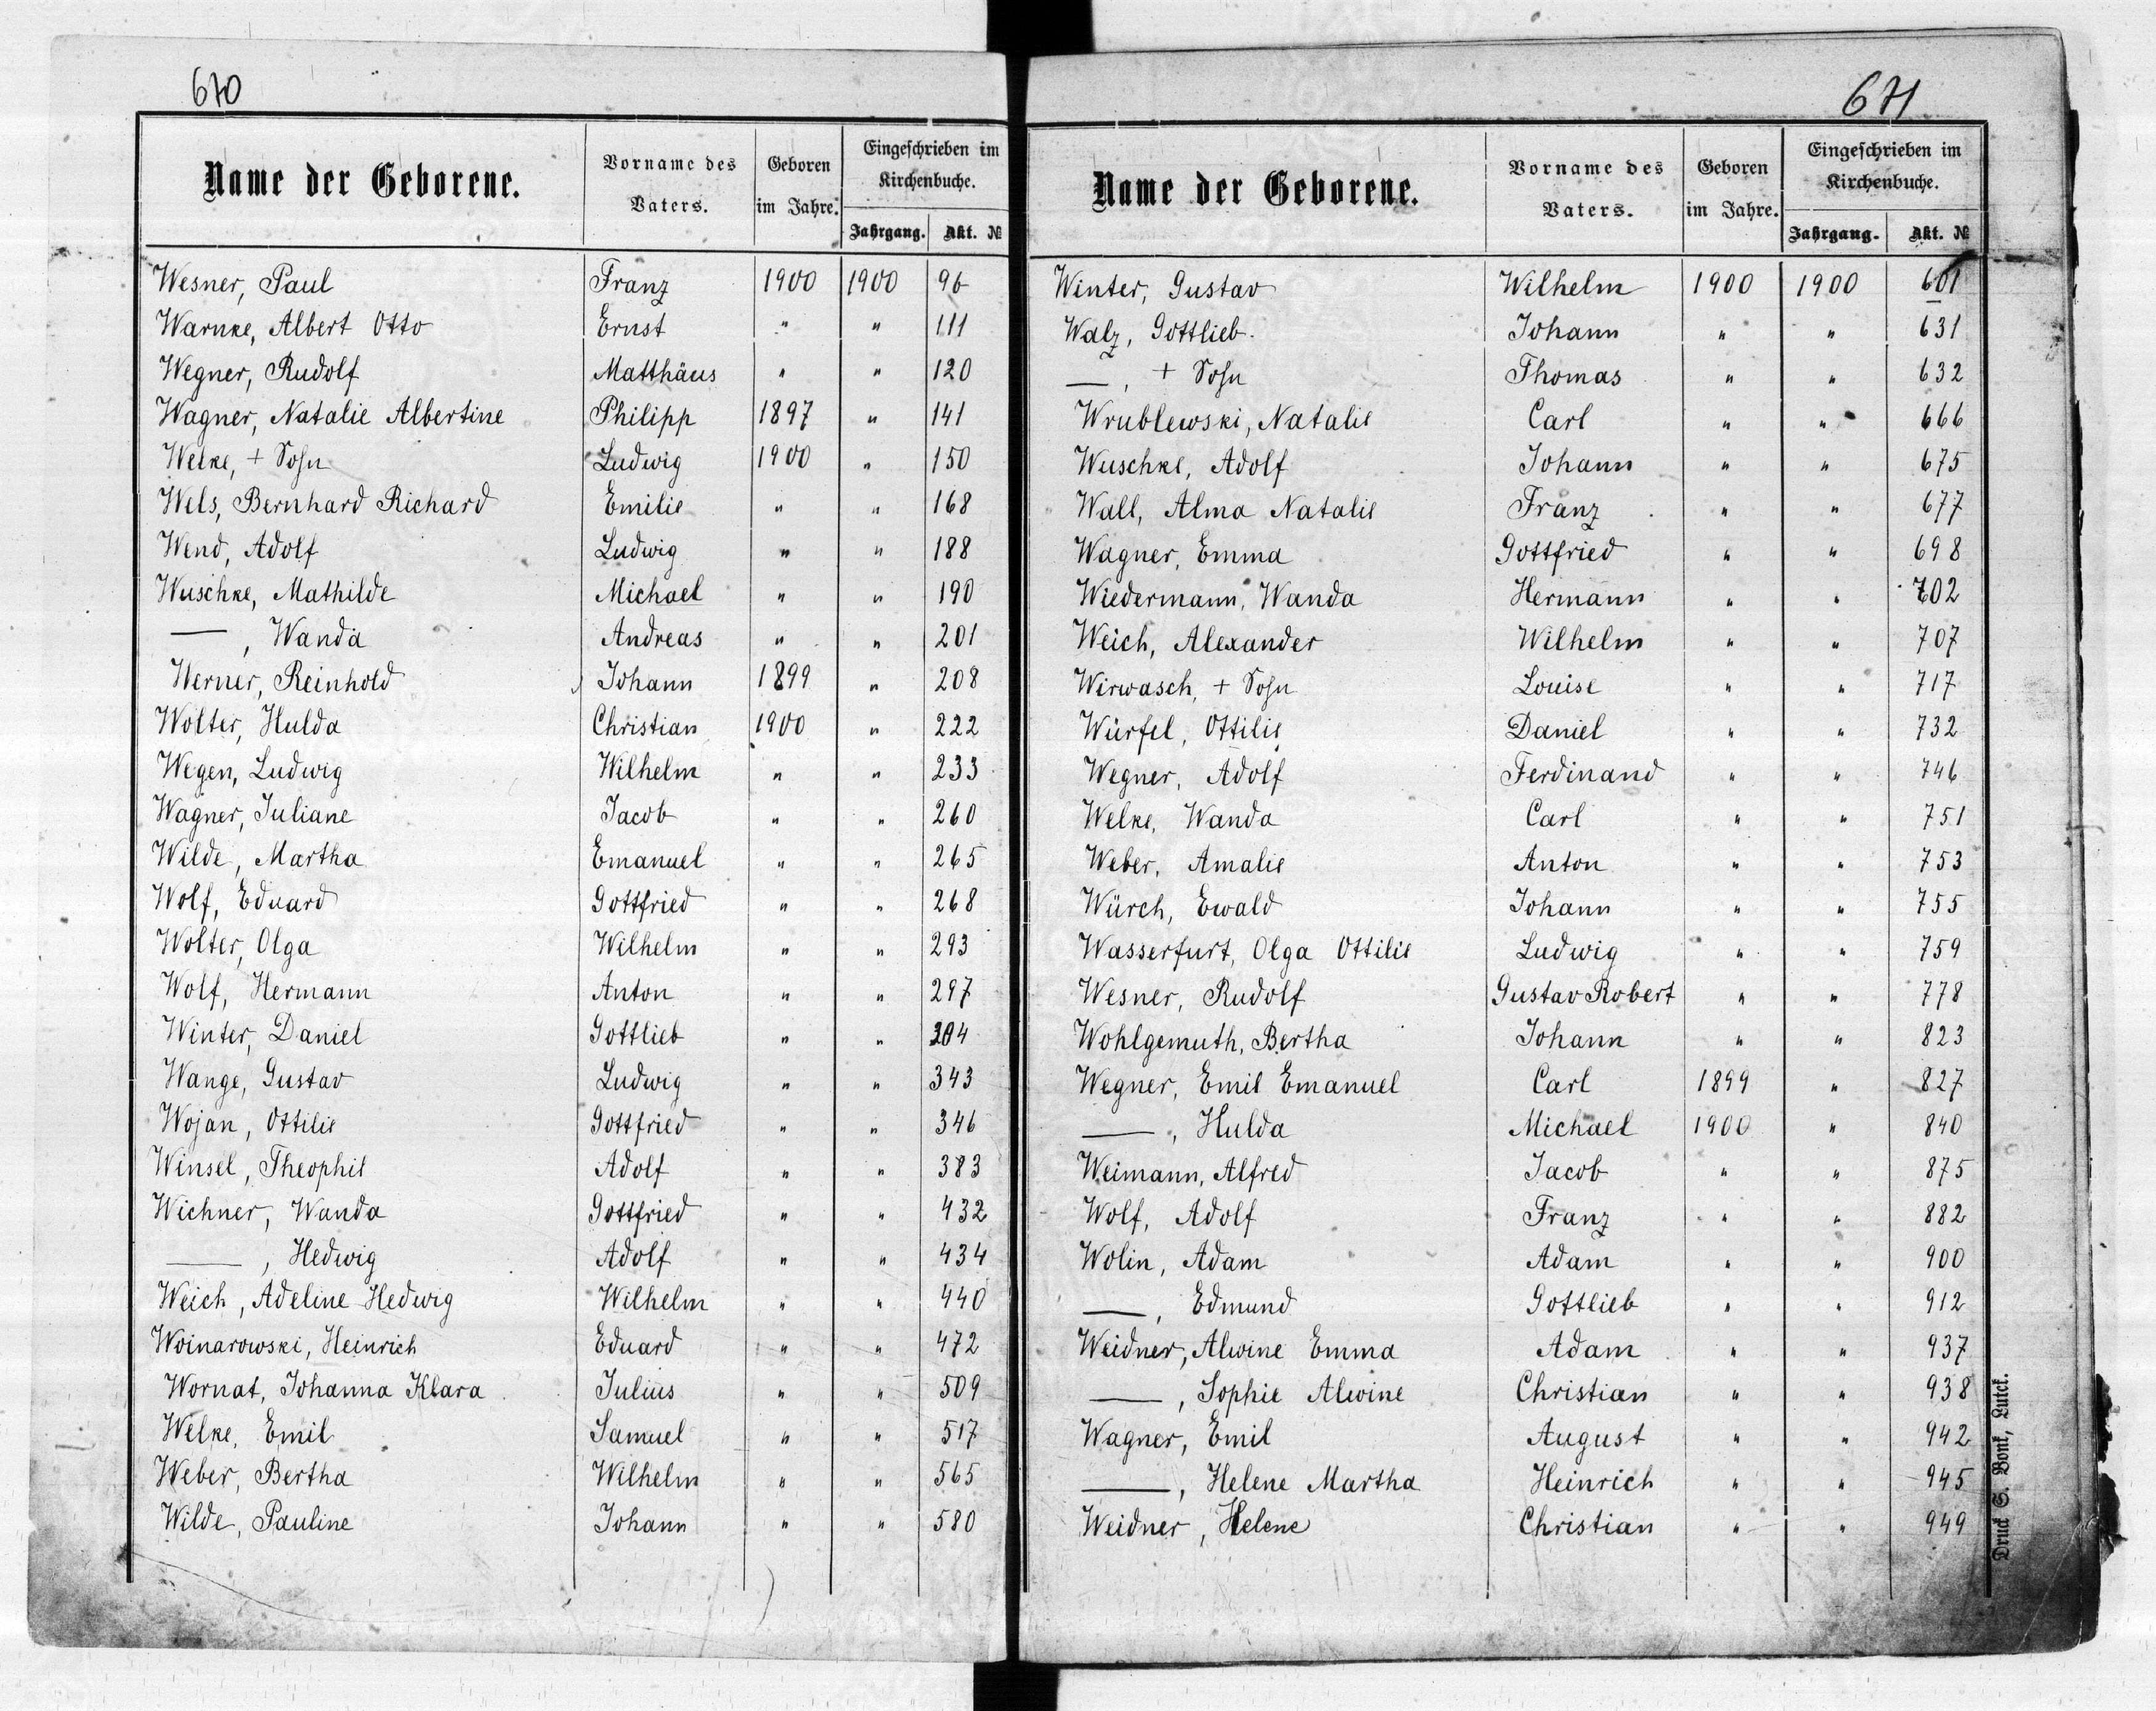 670
Name der Geborene. Vorname des Vaters. Geboren im Jahre. Eingeschrieben im Kirchenbuche. Jahrgang. Akt. №
Wesner, Paul Franz 1900 1900 96
Warnke, Albert Otto Ernst " " 111
Wegner, Rudolf Matthäus " " 120
Wagner, Natalie Albertine Philipp 1897 " 141
Welke, + Sohn Ludwig 1900 " 150
Wels, Bernhard Richard Emilie " " 168
Wend, Adolf Ludwig " " 188
Wuschke, Mathilde Michael " " 190
—, Wanda Andreas " " 201
Werner, Reinhold Johann 1899 " 208
Wolter, Hulda Christian 1900 " 222
Wegen, Ludwig Wilhelm " " 233
Wagner, Juliane Jacob " " 260
Wilde, Martha Emanuel " " 265
Wolf, Eduard Gottfried " " 268
Wolter, Olga Wilhelm " " 293
Wolf, Hermann Anton " " 297
Winter, Daniel Gottlieb " " 304
Wange, Gustav Ludwig " " 343
Wojan, Ottilie Gottfried " " 346
Winsel, Theophil Adolf " " 383
Wichner, Wanda Gottfried " " 432
—, Hedwig Adolf " " 434
Weich, Adeline Hedwig Wilhelm " " 440
Woinarowski, Heinrich Eduard " " 472
Wornat, Johanna Klara Julius " " 509
Welke, Emil Samuel " " 517
Weber, Bertha Wilhelm " " 565
Wilde, Pauline Johann " " 580
671
Name der Geborene. Vorname des Vaters. Geboren im Jahre. Eingeschrieben im Kirchenbuche. Jahrgang. Akt. №
Winter, Gustav Wilhelm 1900 1900 601
Walz, Gottlieb Johann " " 631
—, + Sohn Thomas " " 632
Wrublewski, Natalie Carl " " 666
Wuschke, Adolf Johann " " 675
Wall, Alma Natalie Franz " " 677
Wagner, Emma Gottfried " " 698
Wiedermann, Wanda Hermann " " 702
Weich, Alexander Wilhelm " " 707
Wirwasch, + Sohn Louise " " 717
Würfel, Ottilie Daniel " " 732
Wegner, Adolf Ferdinand " " 746
Welke, Wanda Carl " " 751
Weber, Amalie Anton " " 753
Würch, Ewald Johann " " 755
Wasserfurt, Olga Ottilie Ludwig " " 759
Wesner, Rudolf Gustav Robert " " 778
Wohlgemuth, Bertha Johann " " 823
Wegner, Emil Emanuel Carl 1899 " 827
—, Hulda Michael 1900 " 840
Weimann, Alfred Jacob " " 875
Wolf, Adolf Franz " " 882
Wolin, Adam Adam " " 900
—, Edmund Gottlieb " " 912
Weidner, Alwine Emma Adam " " 937
—, Sophie Alwine Christian " " 938
Wagner, Emil August " " 942
—, Helene Martha Heinrich " " 945
Weidner, Helene Christian " " 949
Druck S. Bonk, Lutzk.